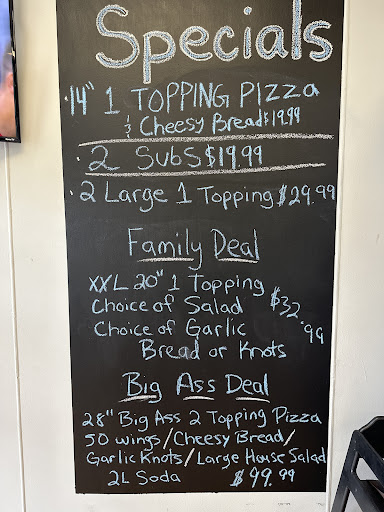 Specials
· 14" 1 TOPPING PIZZA
& Cheesy Bread $19.99
· 2 Subs $19.99
· 2 Large 1 Topping $29.99
Family Deal
XXL 20" 1 Topping
Choice of Salad $32.99
Choice of Garlic
Bread or Knots
Big Ass Deal
28" Big Ass 2 Topping Pizza
50 wings/Cheesy Bread/
Garlic Knots/Large House Salad
2L Soda $99.99